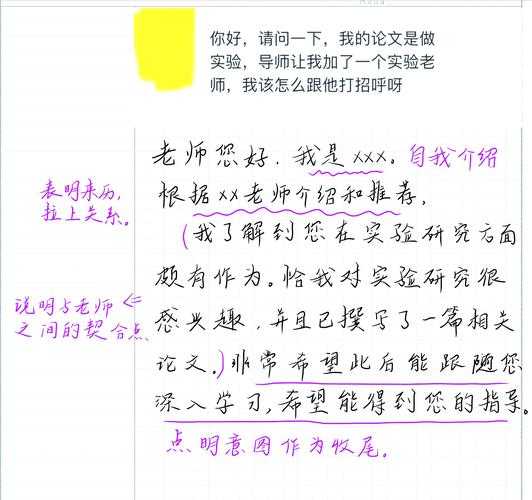 你好，请问一下，我的论文是做
实验，导师让我加了一个实验老
师，我该怎么跟他打招呼呀
老师您好，我是xxx。自我介绍
表明来历，
拉上关系。
根据xx老师介绍和推荐，
(我了解到您在实验研究方面
颇有作为。恰我对实验研究很
说明与老师
之间的契合点
感兴趣，并且已撰写了一篇相关
论文。)非常希望此后能跟随您
深入学习，希望能得到您的指导。
点明意图作为收尾。